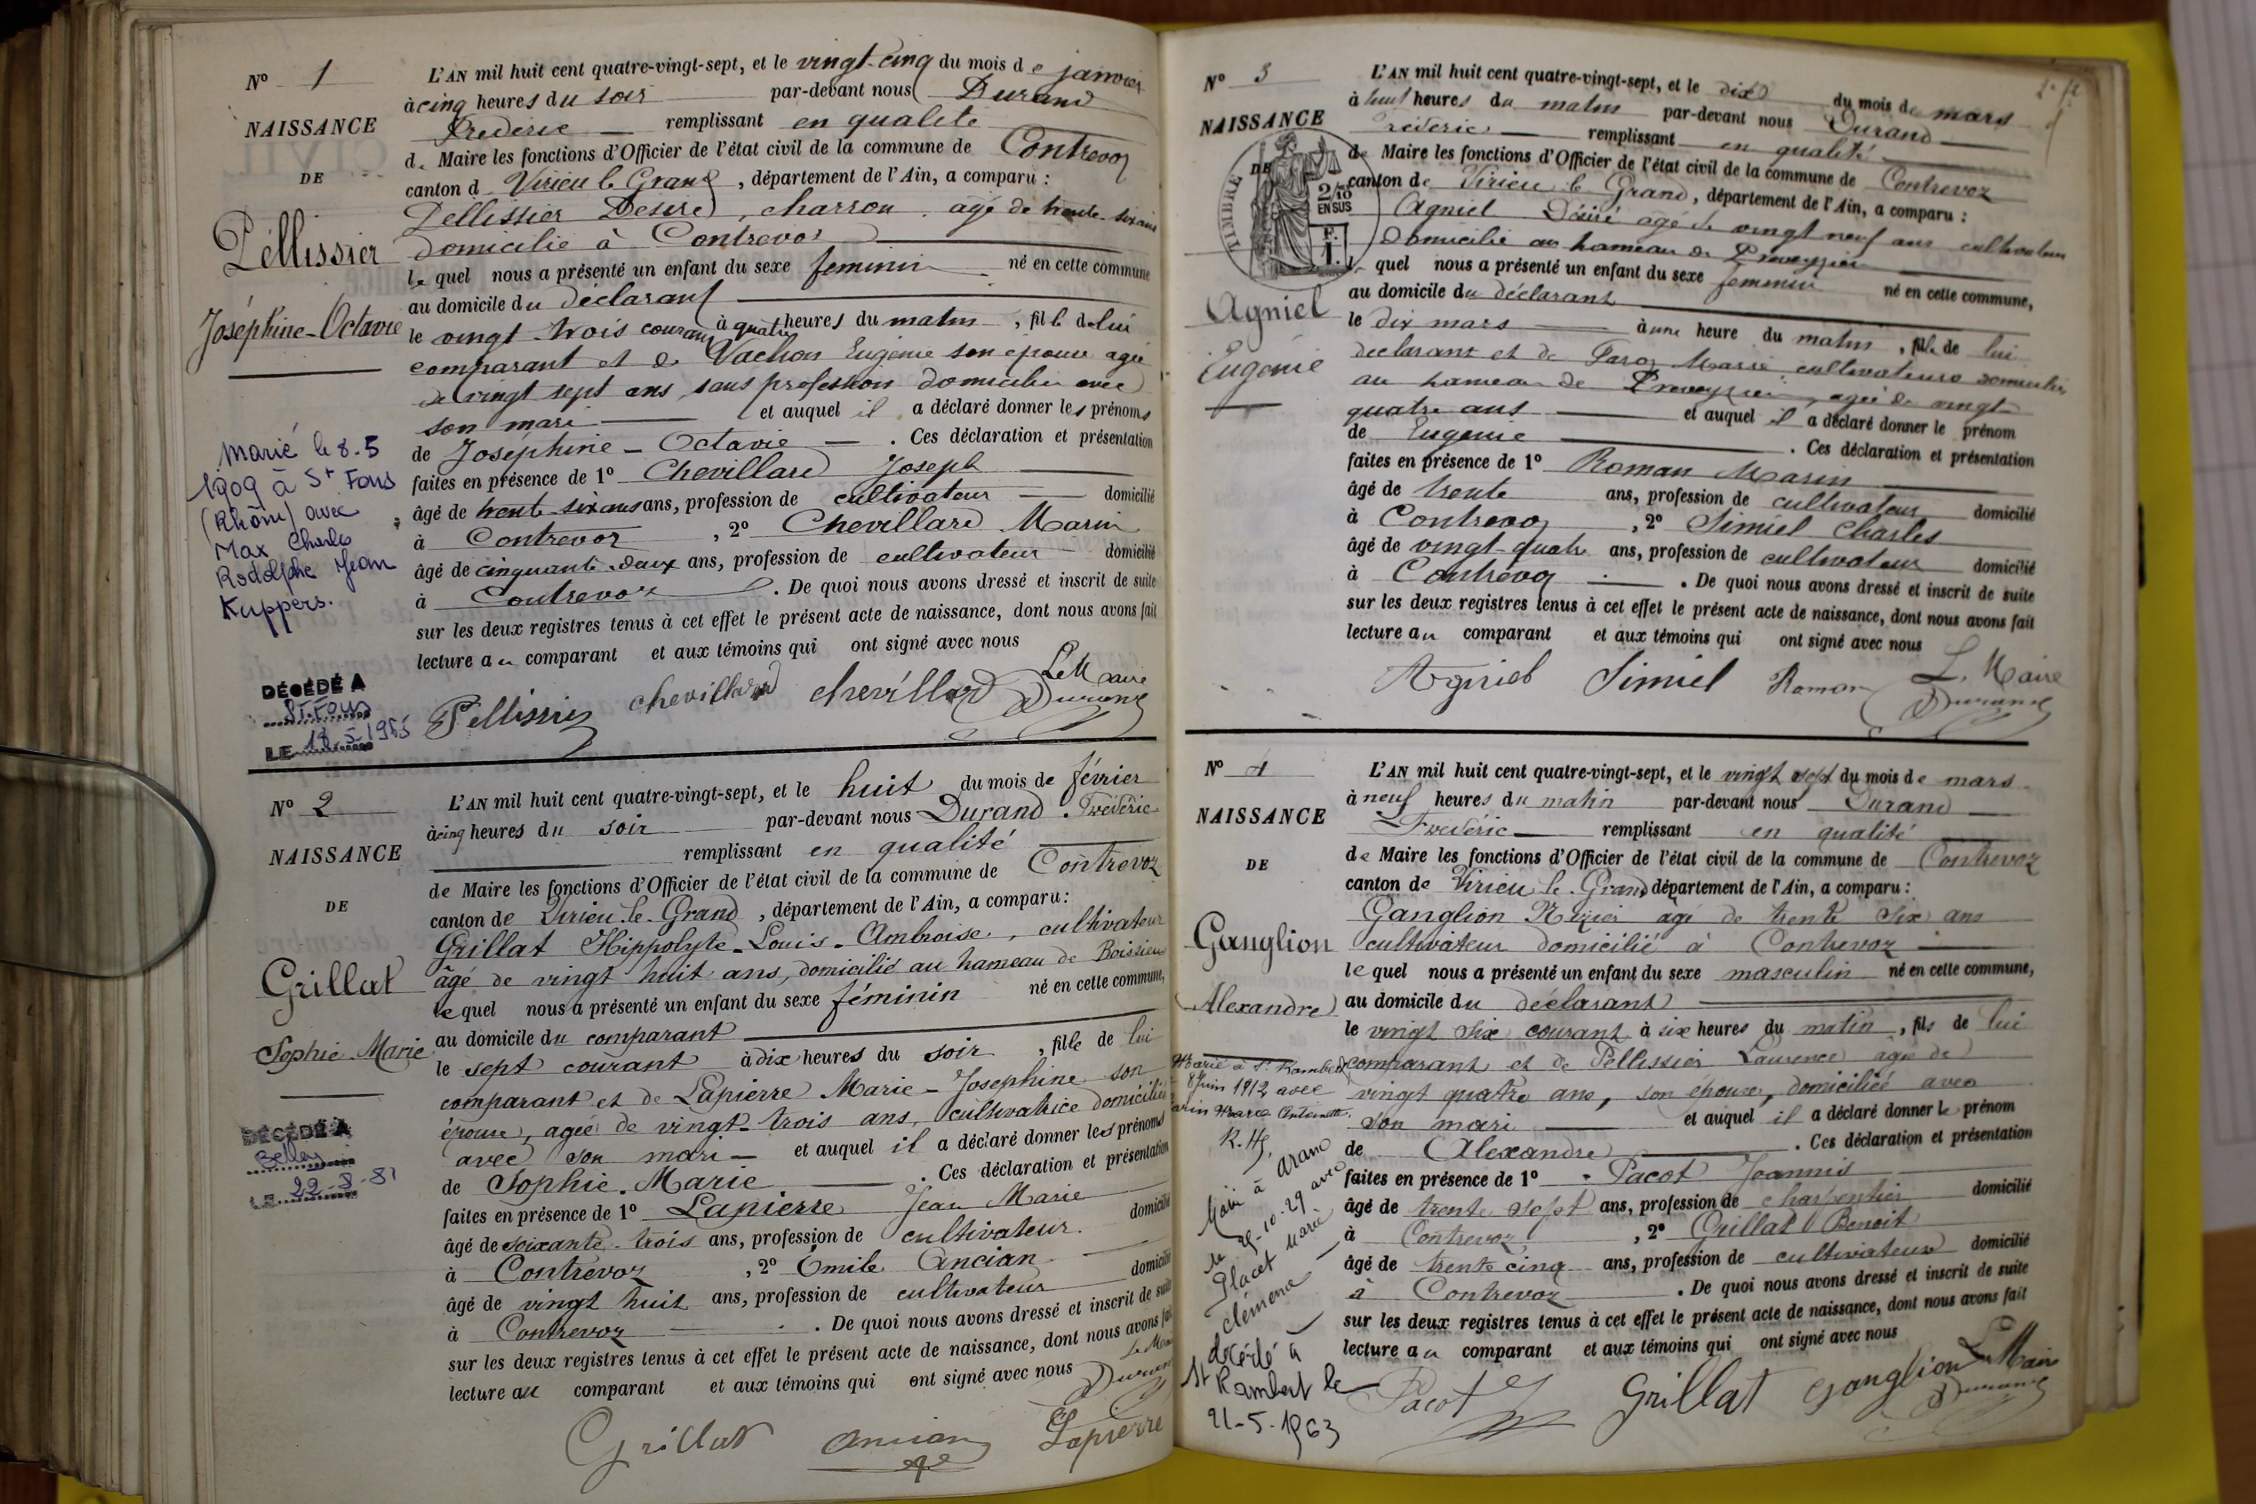 N° 1
NAISSANCE
DE
Péllissier
Joséphine-Octavie
L'AN mil huit cent quatre-vingt-sept, et le vingt-cinq du mois de janvier
à cinq heures du soir par-devant nous Durand
Frédéric remplissant en qualité
de Maire les fonctions d'Officier de l'état civil de la commune de Contrevoz
canton d Virieu le Grand, département de l'Ain, a comparu :
Pellissier Désiré, charron, agé de trente-six ans
domicilié à Contrevoz
lequel nous a présenté un enfant du sexe feminin né en cette commune
au domicile du déclarant
le vingt-trois courant à quatre heures du matin, fille de lui
comparant et de Vachon Eugénie son épouse agée
de vingt sept ans, sans profession domiciliée avec
son mari et auquel il a déclaré donner les prénoms
de Joséphine-Octavie. Ces déclaration et présentation
faites en présence de 1° Chevillard Joseph
âgé de trente-six ans ans, profession de cultivateur domicilié
à Contrevoz, 2° Chevillard Marin
âgé de cinquante-deux ans, profession de cultivateur domicilié
à Contrevoz. De quoi nous avons dressé et inscrit de suite
sur les deux registres tenus à cet effet le présent acte de naissance, dont nous avons fait
lecture au comparant et aux témoins qui ont signé avec nous
Le Maire
Pellissier chevillard chevillard Durand
Marié le 8.5
1909 à St Fons
(Rhône) avec
Max Charles
Rodolphe Jean
Kuppers.
DÉCÉDÉ A
St. Fons
LE 18-5-1955
N° 2
NAISSANCE
DE
Grillat
Sophie-Marie
L'AN mil huit cent quatre-vingt-sept, et le huit du mois de février
à cinq heures du soir par-devant nous Durand Frédéric
remplissant en qualité
de Maire les fonctions d'Officier de l'état civil de la commune de Contrevoz
canton de Virieu-le-Grand, département de l'Ain, a comparu :
Grillat Hippolyte-Louis-Ambroise, cultivateur
âgé de vingt huit ans, domicilié au hameau de Boissieu
lequel nous a présenté un enfant du sexe féminin né en cette commune,
au domicile du comparant
le sept courant à dix heures du soir, fille de lui
comparant et de Lapierre Marie-Josephine son
épouse, agée de vingt-trois ans, cultivatrice domiciliée
avec son mari et auquel il a déclaré donner les prénoms
de Sophie-Marie. Ces déclaration et présentation
faites en présence de 1° Lapierre Jean Marie
âgé de soixante-trois ans, profession de cultivateur domicilié
à Contrevoz, 2° Émile Ancian
âgé de vingt huit ans, profession de cultivateur domicilié
à Contrevoz. De quoi nous avons dressé et inscrit de suite
sur les deux registres tenus à cet effet le présent acte de naissance, dont nous avons fait
lecture au comparant et aux témoins qui ont signé avec nous Le Maire
Durand
Grillat Ancian Lapierre
DÉCÉDÉ A
Belley
LE 22-8-81
N° 3
NAISSANCE
DE
TIMBRE
2/10
EN SUS
Agniel
Eugénie
L'AN mil huit cent quatre-vingt-sept, et le dix du mois de mars
à huit heures du matin par-devant nous Durand
Frédéric remplissant en qualité
de Maire les fonctions d'Officier de l'état civil de la commune de Contrevoz
canton de Virieu le Grand, département de l'Ain, a comparu :
Agniel Désiré âgé de vingt neuf ans cultivateur
domicilié au hameau de Preveyzieu
lequel nous a présenté un enfant du sexe feminin né en cette commune,
au domicile du déclarant
le dix mars à une heure du matin, fille de lui
declarant et de Marie cultivateurs domiciliés
au hameau de Preveyzieu, agée de vingt
quatre ans et auquel il a déclaré donner le prénom
de Eugenie. Ces déclaration et présentation
faites en présence de 1° Roman Marin
âgé de trente ans, profession de cultivateur domicilié
à Contrevoz, 2° Simiel Charles
âgé de vingt-quatre ans, profession de cultivateur domicilié
à Contrevoz. De quoi nous avons dressé et inscrit de suite
sur les deux registres tenus à cet effet le présent acte de naissance, dont nous avons fait
lecture au comparant et aux témoins qui ont signé avec nous
Agniel Simiel Roman Le Maire
Durand
N° 4
NAISSANCE
DE
Ganglion
Alexandre
L'AN mil huit cent quatre-vingt-sept, et le vingt sept du mois de mars
à neuf heures du matin par-devant nous Durand
Frédéric remplissant en qualité
de Maire les fonctions d'Officier de l'état civil de la commune de Contrevoz
canton de Virieu le Grand, département de l'Ain, a comparu :
Ganglion agé de trente six ans
cultivateur domicilié à Contrevoz
lequel nous a présenté un enfant du sexe masculin né en cette commune,
au domicile du déclarant
le vingt six courant à six heures du matin, fils de lui
comparant et de Pellissier Laurence agée de
vingt quatre ans, son épouse, domiciliée avec
son mari et auquel il a déclaré donner le prénom
de Alexandre. Ces déclaration et présentation
faites en présence de 1° Pacot Joannis
âgé de trente sept ans, profession de charpentier domicilié
à Contrevoz, 2° Grillat Benoit
âgé de trente cinq ans, profession de cultivateur domicilié
à Contrevoz. De quoi nous avons dressé et inscrit de suite
sur les deux registres tenus à cet effet le présent acte de naissance, dont nous avons fait
lecture au comparant et aux témoins qui ont signé avec nous
Pacot Grillat Ganglion Le Maire
Durand
Marié à St Rambert
8 Juin 1912 avec
Marie Antoinette.
Marié à Aranc
le 29-10-29 avec
Placet Marie
Clémence
décédé à
St Rambert le
21-5-1963